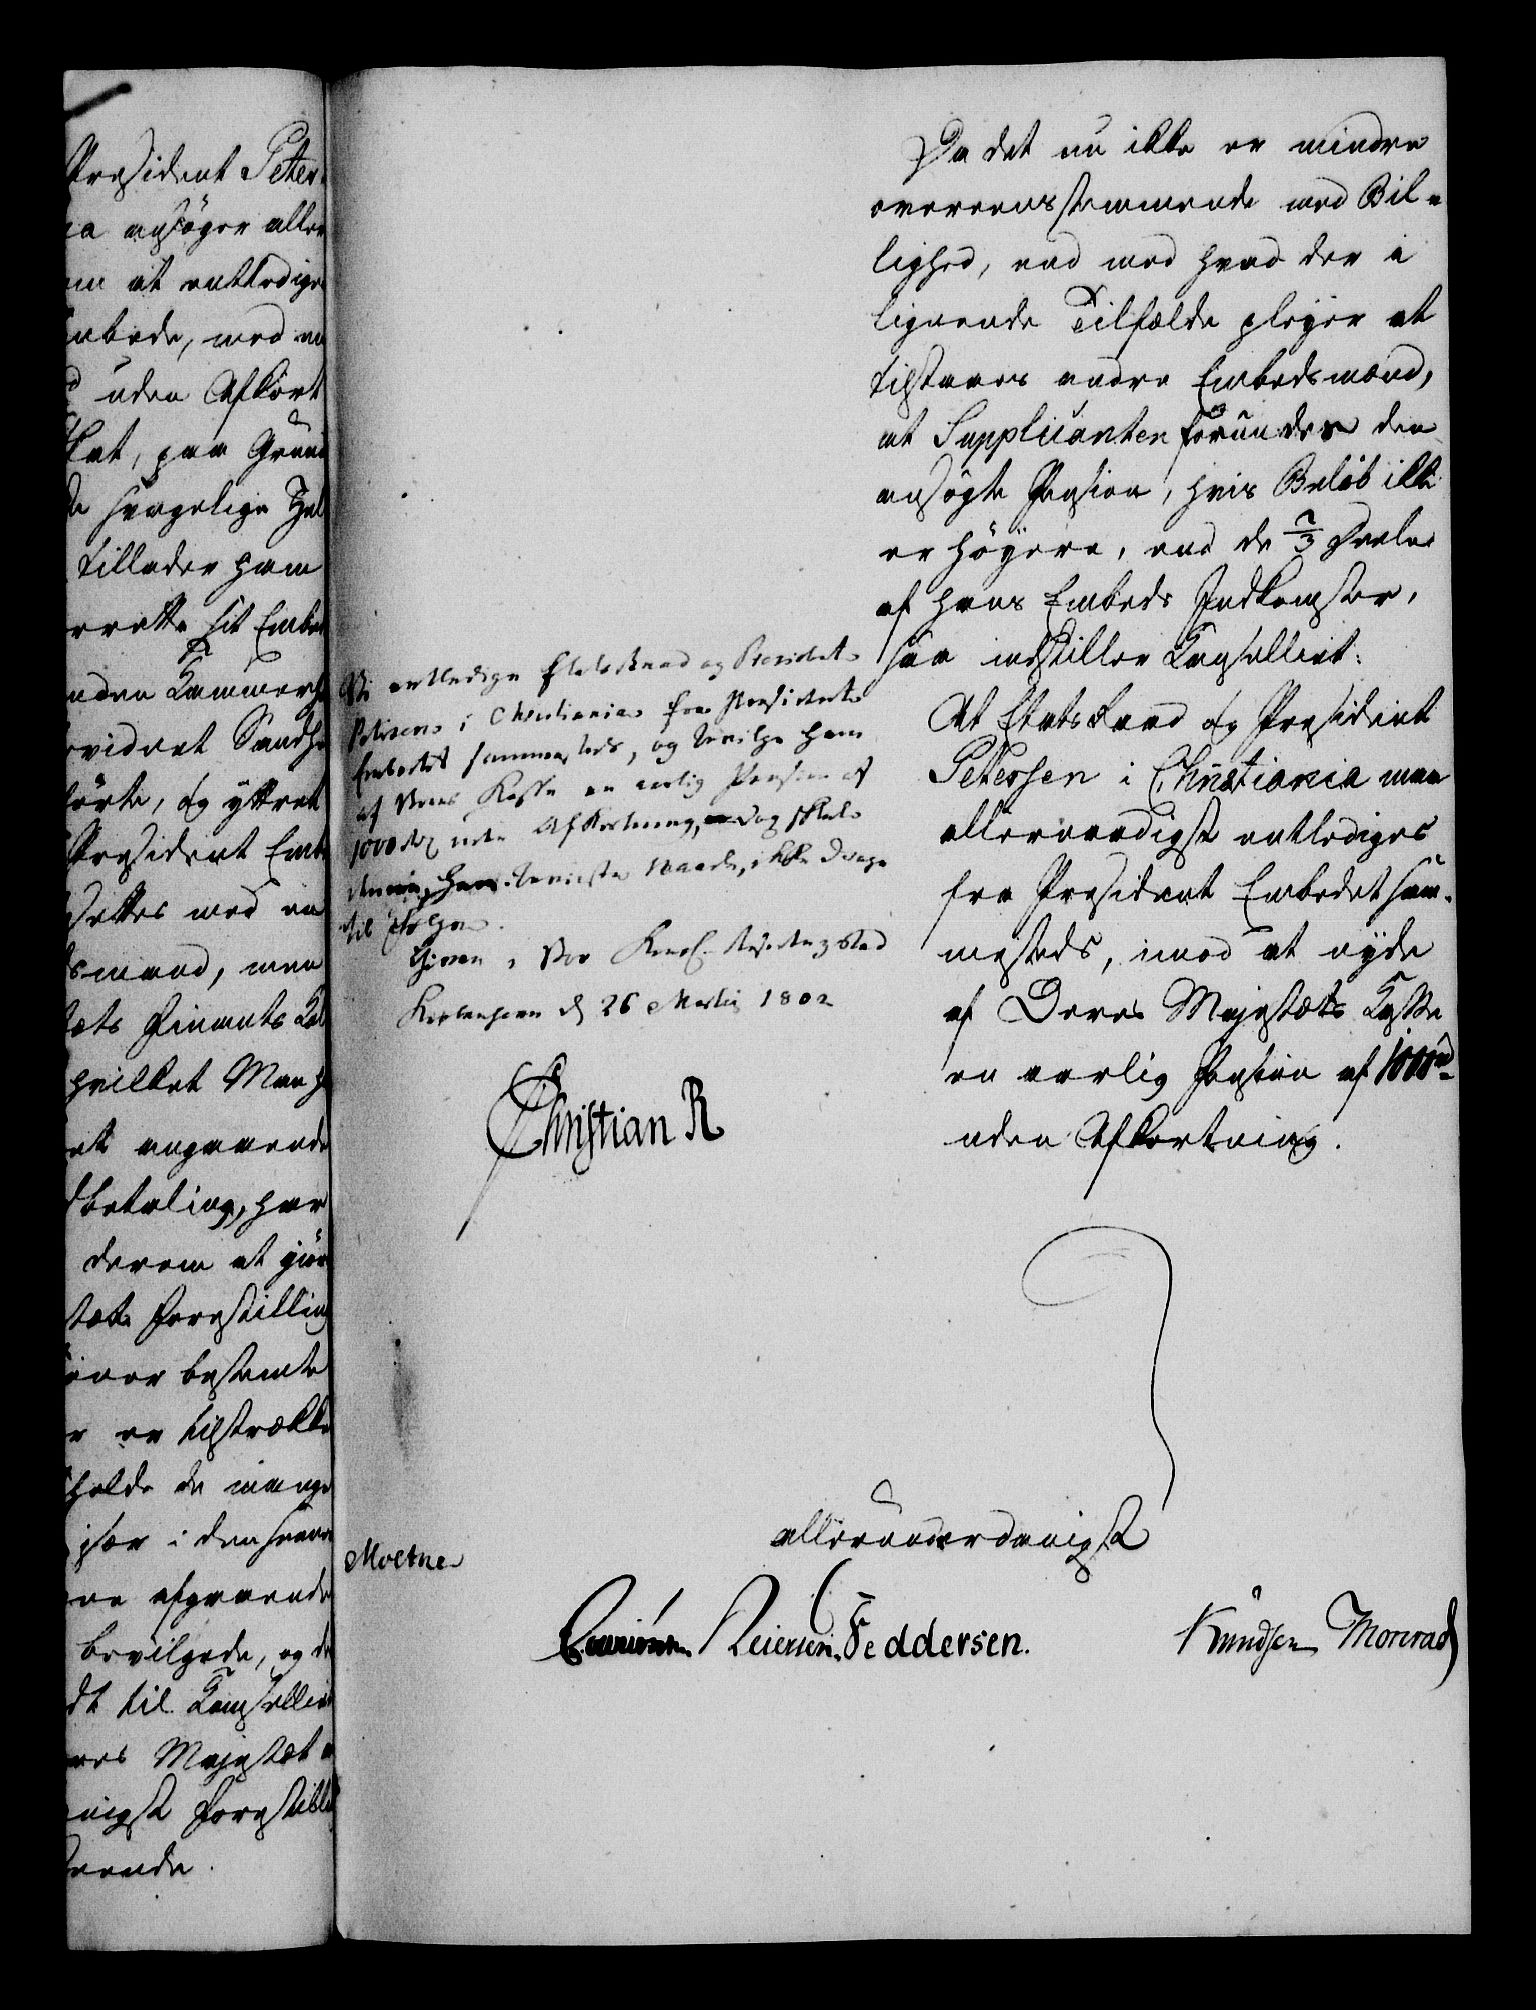 President Peter¬
ia ansöger aller
am at entledige
mbede, med en
uden Afkort
Skat, paa Grund
svagelige Hel
tillader ham
rrette sit Embe
anden Kammerh
evident Sandh
förte, og yttret
President Emb
settes med en
dsmand, men
æts Finants Kol
hvilket Man h
et angaaende
dbetaling, har
derom at giör
stæts Forestilling
bestemte
er tilstrække
holde de mange
især i den svære
ne afgaaende
bevilgede, og d
dt til Kancellie
res Majestæt
nigst Forestill
ende.
Da det nu ikke er mindre
overeensstemmende med Bil-
lighed, end med hvad der i
lignende Tilfælde pleyer at
tilstaaes andre Embedsmænd,
at Supplicanten forundes den
ansögte Pension, hvis Belöb ikke
er höyere, end de 2/3 Deele
af hans Embeds Indkomster,
saa indstiller Cancelliet:
At Etatsraad og President
Petersen i Christiania maa
allernaadigst entlediges
fra President Embedet sam-
mesteds, imod at nyde
af Deres Majestæts Kasse
en aarlig Pension af 1000 rd
uden Afkortning.
Vi entledige Etatsraad og President
Petersen i Christiania fra President
Embedet sammesteds, og bevilge ham
af Vores Kasse en aarlig Pension af
1000 rd uden Afkortning, dog skal
denne, ham beviiste Naade, ikke drages
til Fölge.
Given i Vor Kongl. Residentzstad
Kiöbenhavn d 26 Martii 1802
Christian R
allerunderdanigst
Moltke
Reiersen. Feddersen.
Knudsen Monrad